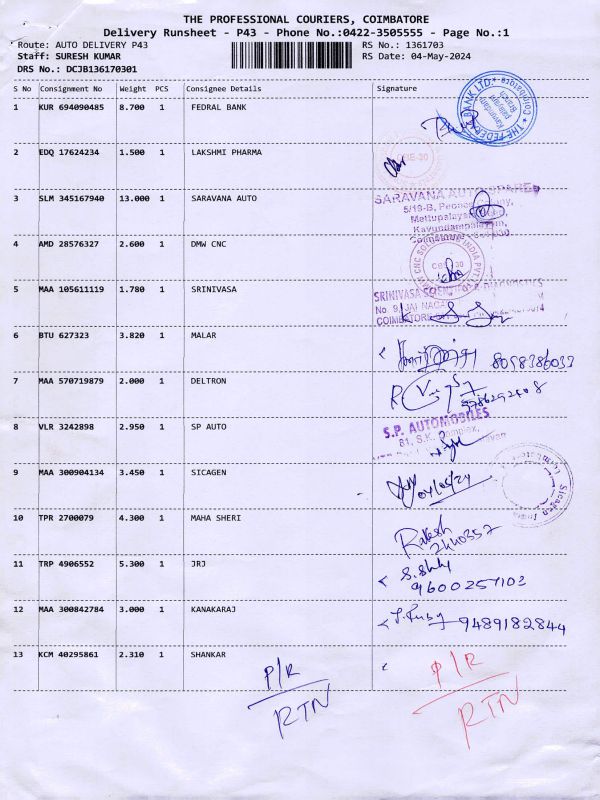 THE PROFESSIONAL COURIERS, COIMBATORE
Delivery Runsheet - P43 - Phone No.:0422-3505555 - Page No.:1
Route: AUTO DELIVERY P43 RS No.: 1361703
Staff: SURESH KUMAR RS Date: 04-May-2024
DRS No.: DCJB136170301
S No Consignment No Weight PCS Consignee Details Signature
1 KUR 694090485 8.700 1 FEDRAL BANK
THE FEDERAL BANK LTD. Coimbatore
Branch
2 EDQ 17624234 1.500 1 LAKSHMI PHARMA
3 SLM 345167940 13.000 1 SARAVANA AUTO
SARAVANA AUTO SPARES
5/19-B,
Mettupalayam
Kavundampalayam,
4 AMD 28576327 2.600 1 DMW CNC
5 MAA 105611119 1.780 1 SRINIVASA
SRINIVASA
No
COIMBATORE
6 BTU 627323 3.820 1 MALAR
8098386033
7 MAA 570719879 2.000 1 DELTRON
8 VLR 3242898 2.950 1 SP AUTO
S.P. AUTOMOBILES
81, S.K. Complex,
9 MAA 300904134 3.450 1 SICAGEN
04/05/24
Sicagen India
10 TPR 2700079 4.300 1 MAHA SHERI
Rakesh
2440357
11 TRP 4906552 5.300 1 JRJ
9600257103
12 MAA 300842784 3.000 1 KANAKARAJ
9489182844
13 KCM 40295861 2.310 1 SHANKAR
P/R P/R
RTN RTN